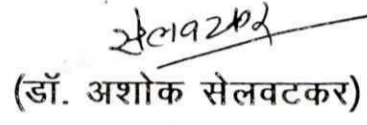 सेलवटकर
(डॉ. अशोक सेलवटकर)